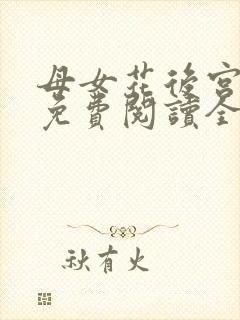 母女花後宮
免費閱讀全
秋有火